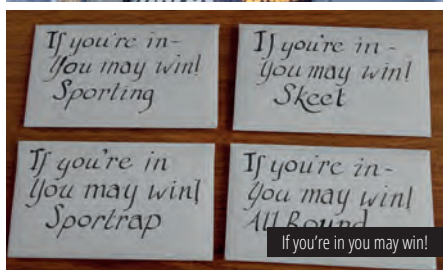 If you're in-
You may win!
Sporting
If you're in -
You may win!
Skeet
If you're in
You may win!
Sportrap
If you're in-
You may win!
All Round
If you're in you may win!